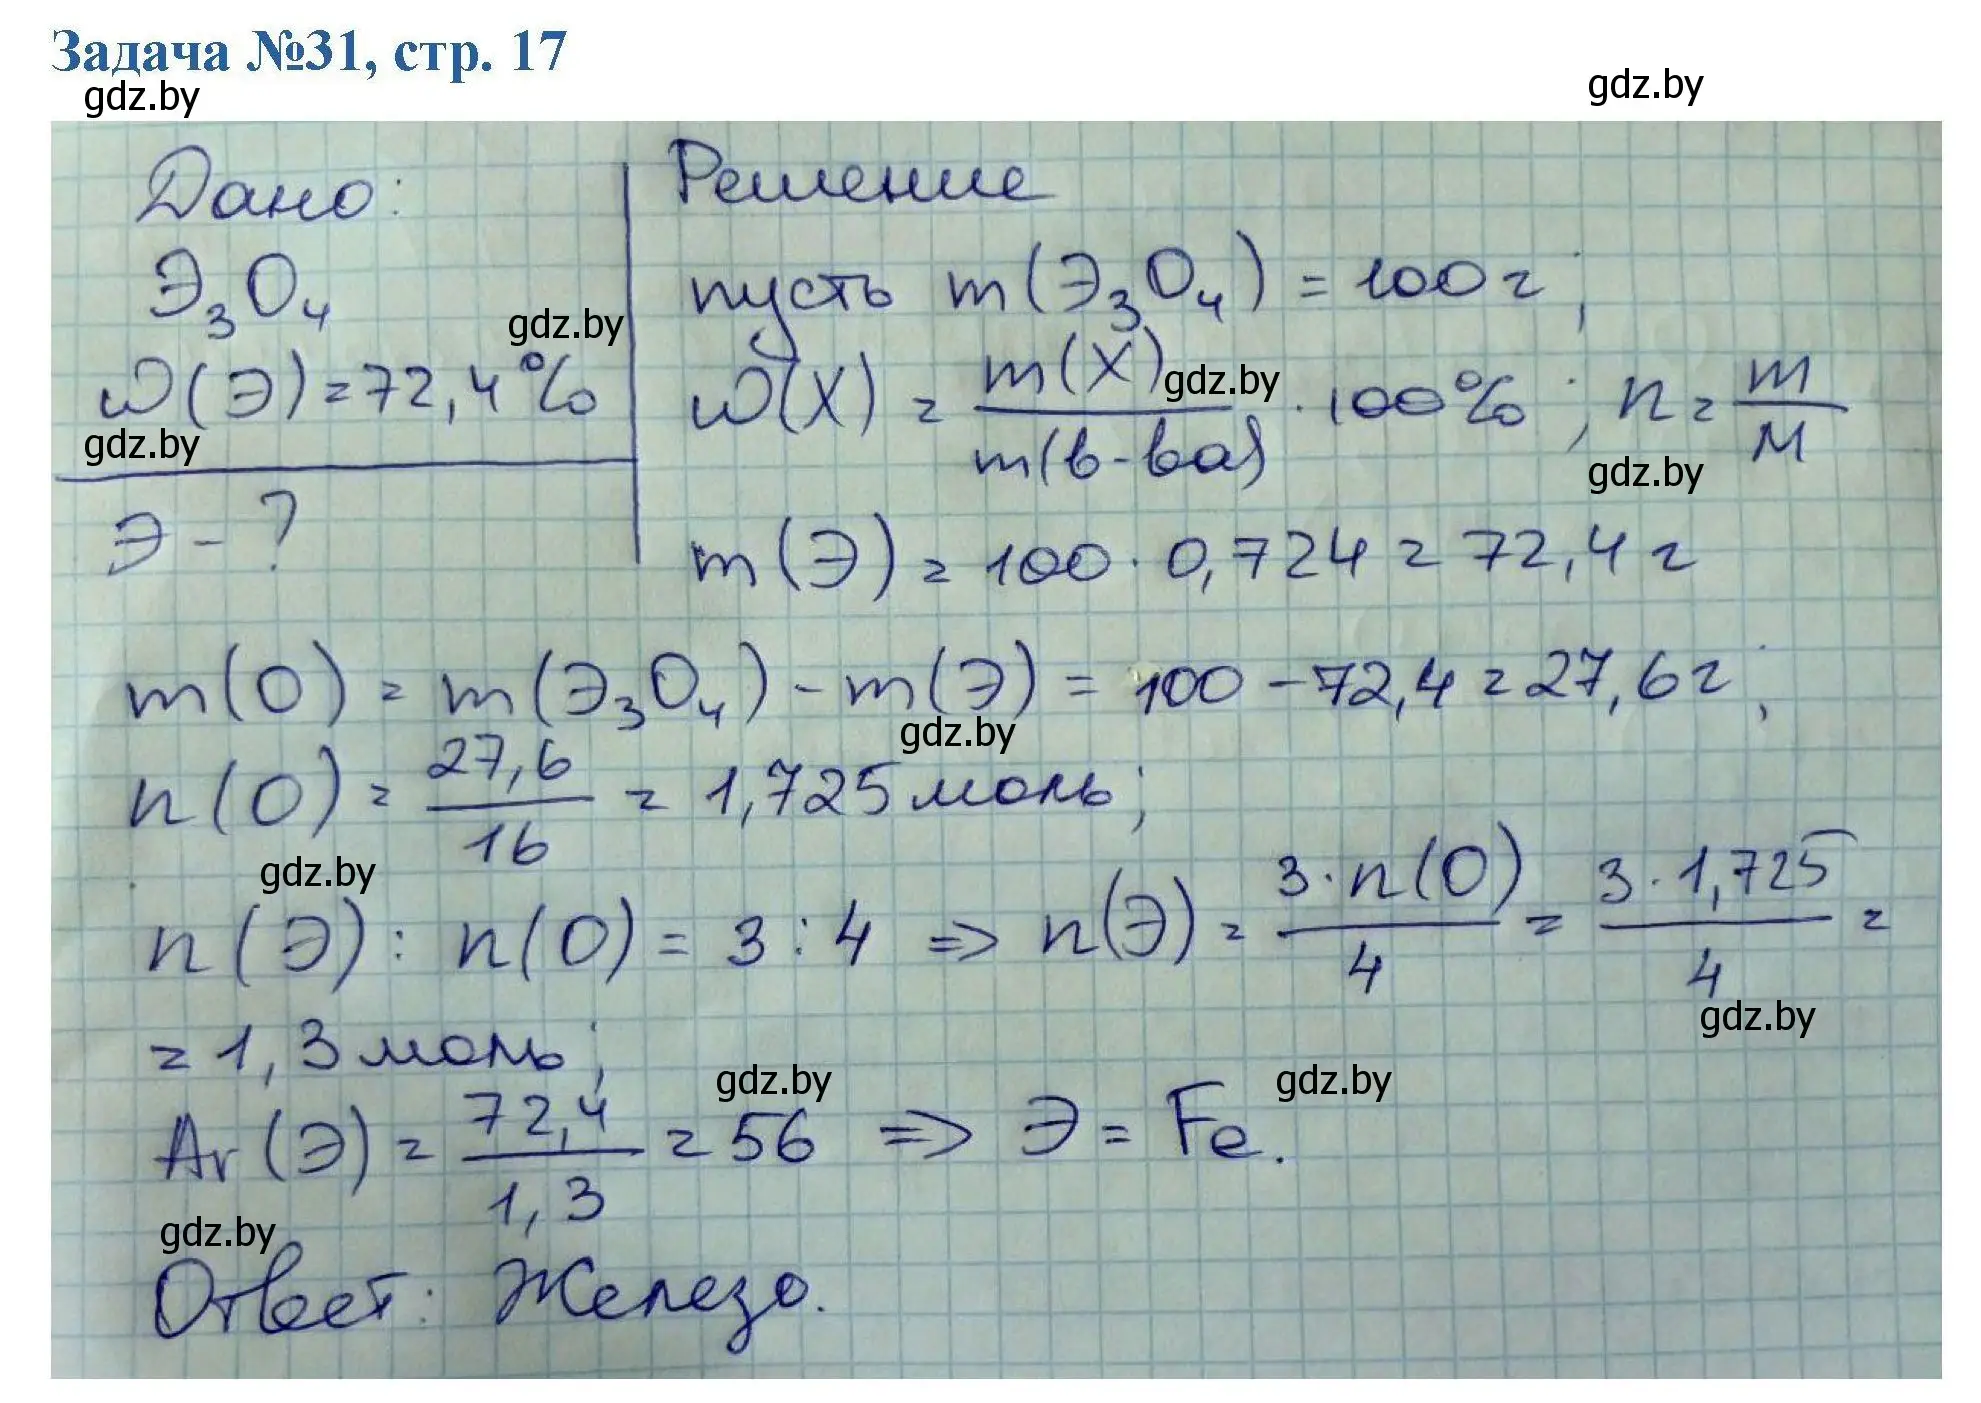 Задача №31, стр. 17
gdz.by gdz.by
Дано:
Э₃O₄
gdz.by
ω(Э) = 72,4%
gdz.by
Э - ?
Решение
пусть m(Э₃O₄) = 100г;
ω(X) = m(X) / m(в-ва) · 100%; n = m / M
gdz.by
gdz.by
m(Э) = 100 · 0,724 = 72,4г
m(O) = m(Э₃O₄) - m(Э) = 100 - 72,4 = 27,6г;
gdz.by
n(O) = 27,6 / 16 = 1,725 моль;
gdz.by
n(Э) : n(O) = 3 : 4 => n(Э) = 3·n(O) / 4 = 3·1,725 / 4 =
gdz.by
= 1,3 моль;
gdz.by gdz.by
Ar(Э) = 72,4 / 1,3 = 56 => Э = Fe.
gdz.by
Ответ: Железо.